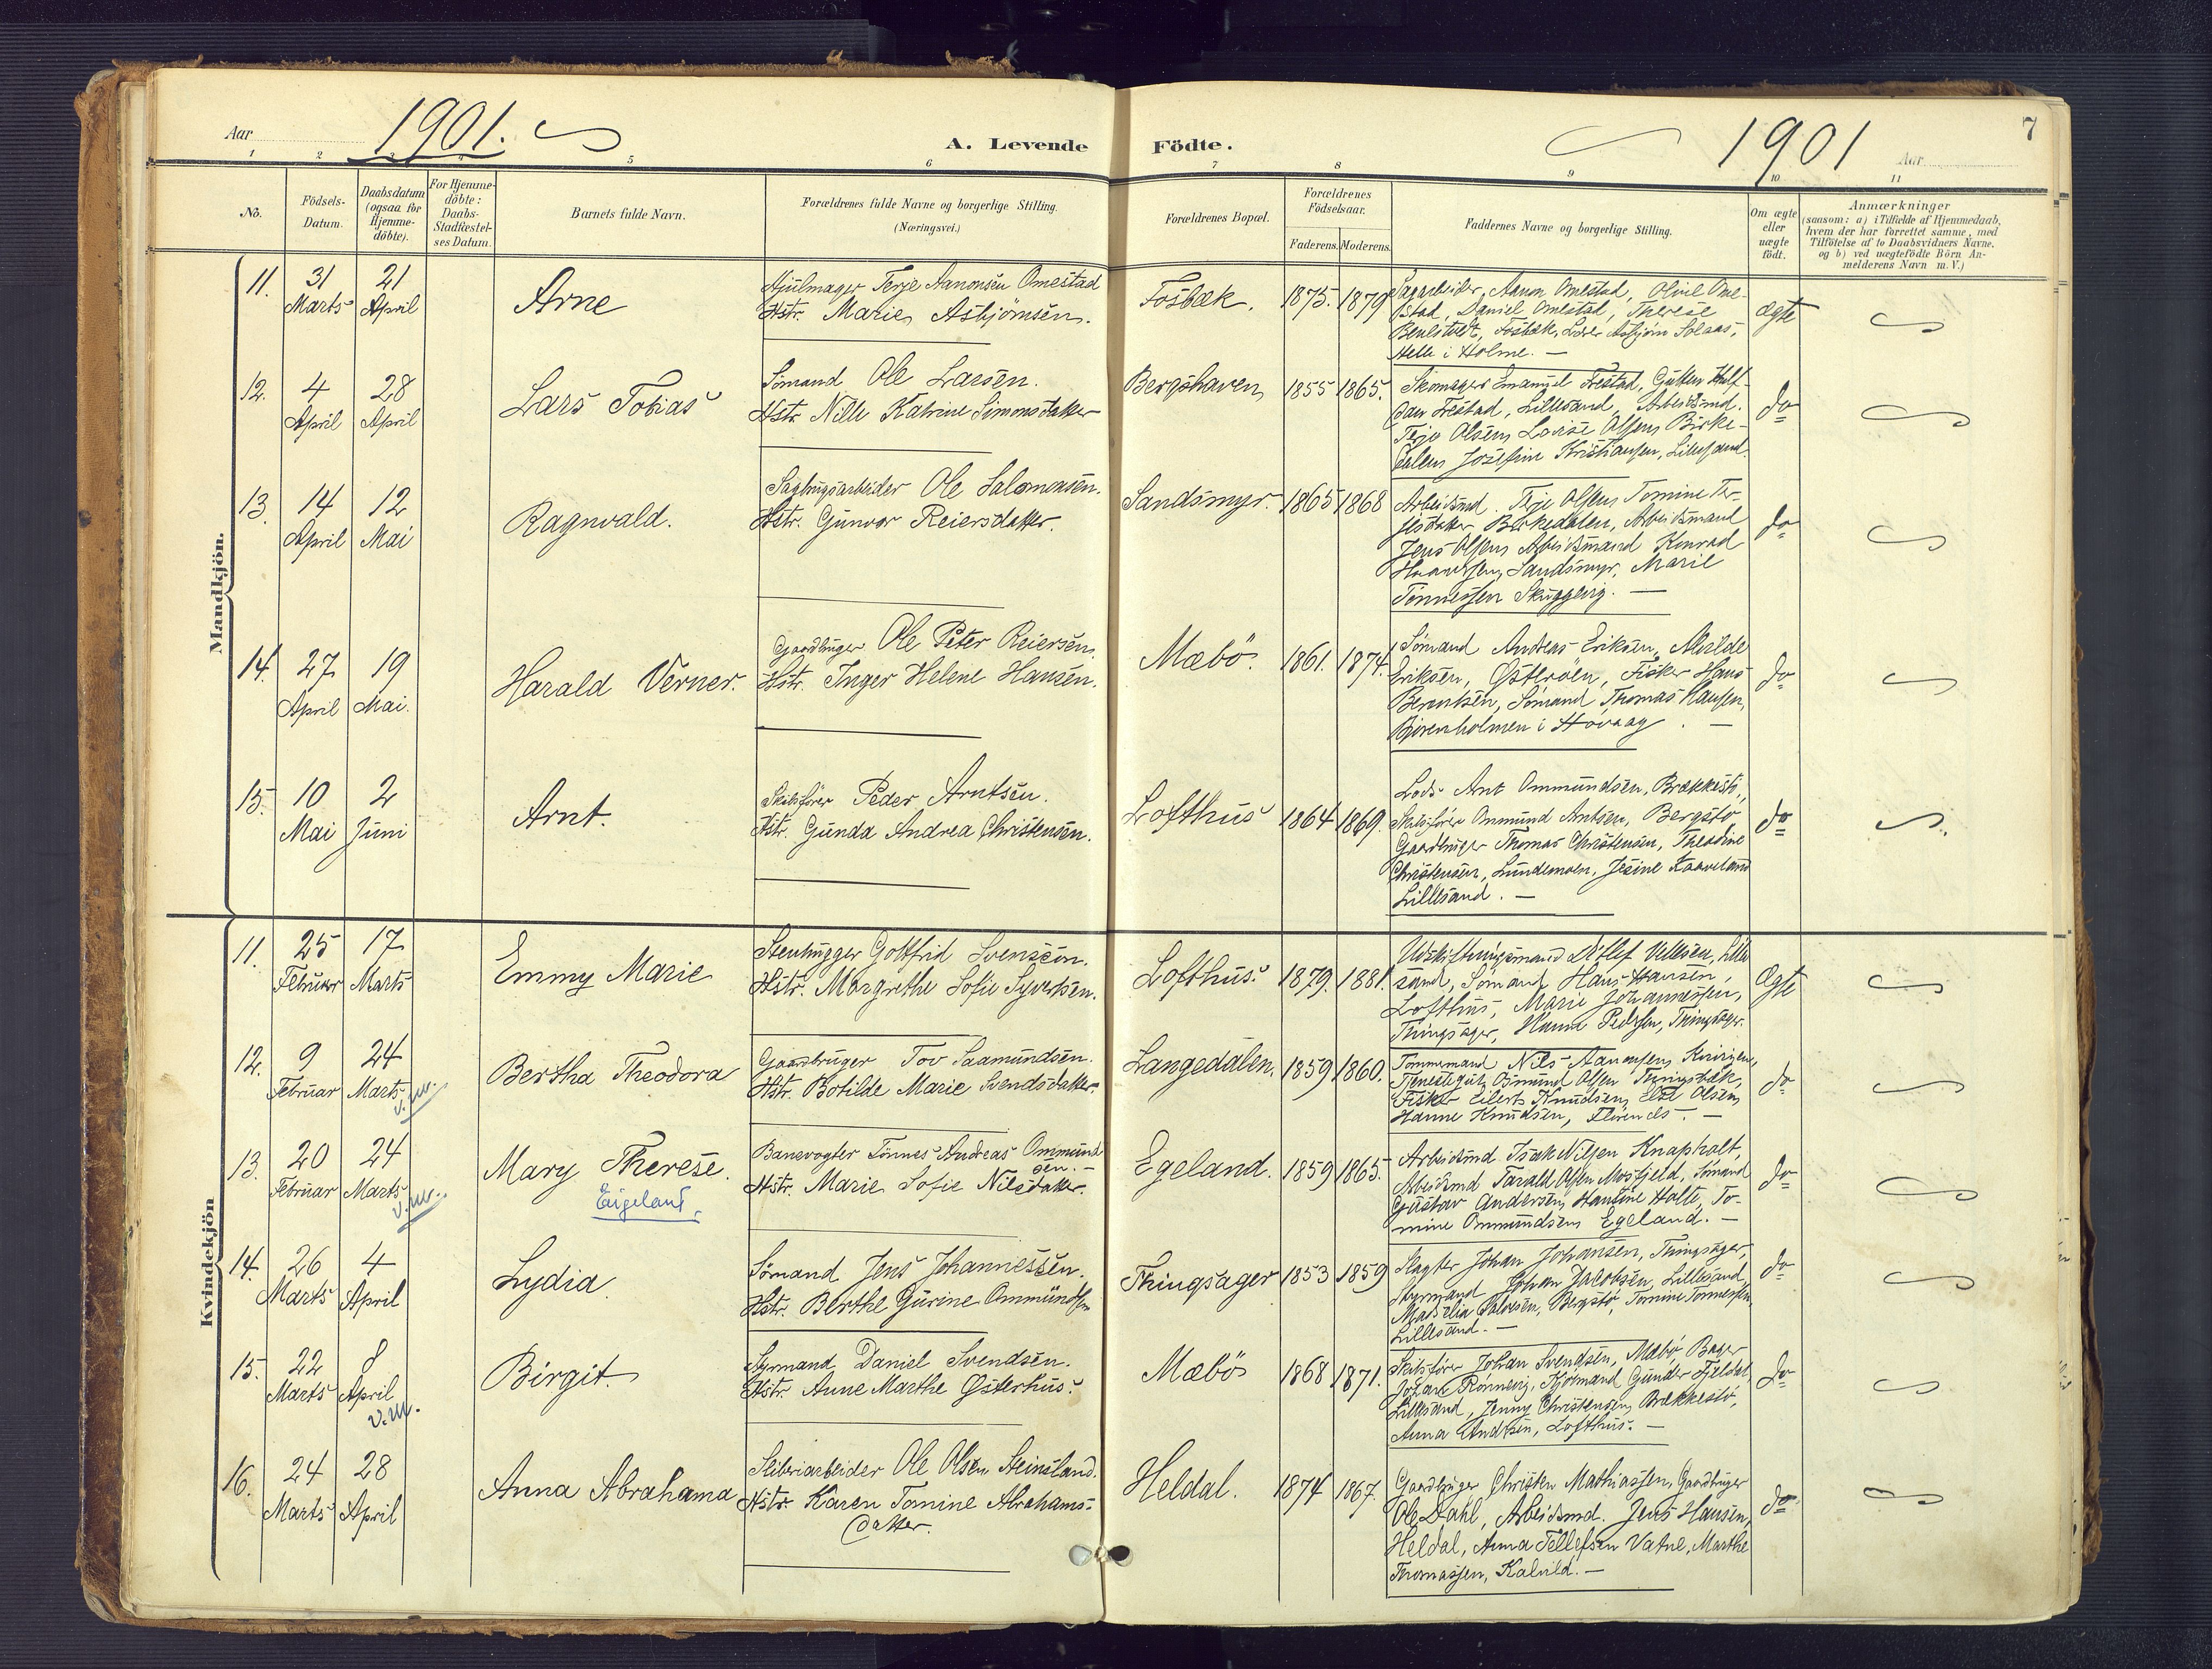 Aar 1901.
A. Levende
Födte.
1901 Aar
7
1 2 3 4 5 6 7 8 9 10 11
No.
Födsels-
Datum.
Daabsdatum
(ogsaa for
Hjemme-
döbte).
For Hjemme-
döbte:
Daabs-
Stadfæstel-
ses Datum.
Barnets fulde Navn.
Forældrenes fulde Navne og borgerlige Stilling.
(Næringsvei.)
Forældrenes Bopæl.
Forældrenes
Födselsaar.
Faderens. Moderens.
Faddernes Navne og borgerlige Stilling.
Om ægte
eller
uægte
födt.
Anmærkninger
(saasom: a) i Tilfælde af Hjemmedaab,
hvem der har forrettet samme, med
Tilföielse af to Daabsvidners Navne.
og b) ved uægtefödte Börn An-
melderens Navn m. V.)
Mandkjön.
11.
31
Marts
21
April
Arne
Hjulmager Terje Aanonsen Omestad
Hstr. Marie Asbjörnsen.
Fosbæk.
1875. 1879
Sagarbeider, Aanon Omestad, Olive Ome-
stad, Daniel Omestad, Therese
Fosbæk, Asbjørn
i Holme. —
ægte
12.
4
April
28
April
Lars Tobias
Sömand Ole Larsen.
Hstr. Nille Katrine Simonsdatter
Bergshaven
1855 1865.
Skomager Emanuel Frestad, Gutten Half-
dan Frestad, Lillesand, Arbeidsmd.
Terje Olsen, Lovise Olsen, Birke-
dalen Josefine Kristiansen, Lillesand.
do
13.
14
April
12
Mai
Ragnvald.
Sagbrugsarbeider Ole Salomonsen.
Hstr. Gunvor Reiersdatter.
Sandsmyr.
1865 1868
Arbeidsmd. Terje Olsen, Tomine Ter-
jesdatter Birkedalen, Arbeidsmand
Jens Olsen, Arbeidsmand Konrad
Sandsmyr, Marie
Tönnessen Skuggevig. —
do
14.
27
April
19
Mai.
Harald Verner.
Gaardbruger Ole Peter Reiersen.
Hstr. Inger Helene Hansen.
Mæbö.
1861. 1874.
Sömand Andreas Eriksen,
Eriksen, Österöen, Fisker Hans
Berentsen, Sömand Thomas Hansen,
i Hövaag. —
do
15.
10
Mai
2
Juni
Arnt.
Skibsförer Peder Arntsen.
Hstr. Gunda Andrea Christensen.
Lofthus
1864 1869.
Lods Ant Ommundsen, Brækkestö,
Skibsförer Ommund Antsen, Bergstö
Gaardbruger Thomas Christensen, Theodine
Christensen, Lundemoen, Jesine Kaaveland
Lillesand. —
do
Kvindekjön
11.
25
Februar
17
Marts
Emmy Marie
Stenhugger Gottfrid Svensson.
Hstr. Margrethe Sofie Syvertsen.
Lofthus.
1879. 1881.
Udskiftningsmand Ditlef Vellesen, Lille
sand, Sömand Hans Hansen,
Lofthus, Marie Johannessen,
Thingsager, Hanna Pedersen, Thingsager.
Ægte
12.
9
Februar
24
Marts
v.m.
Bertha Theodora
Gaardbruger Tov Saamundsen.
Hstr. Botilde Marie Svendsdatter.
Langedalen.
1859 1860.
Tømmermand Nils Aanonsen,
Tjenestegut Osmund Olsen Thingsbæk,
Fisker Eilert Knudsen, Olsen,
Hanne Knudsen, —
do
13.
20
Februar
24
Marts
v.m.
Mary Therese.
Eigeland.
Banevogter Tönnes Andreas Ommund
sen. —
Hstr. Marie Sofie Nilsdatter.
Egeland.
1859 1865.
Arbeidsmd Isak Nilsen Knapholt,
Arbeidsmd Tarald Olsen Mosfjeld, Sömand
Gustav Andersen, Hantine Holte, To-
mine Ommundsen, Egeland. —
do
14.
26
Marts
4
April
Lydia.
Sömand Jens Johannessen.
Hstr. Berthe Gurine Ommundsen
Thingsager
1853 1859
Slagter Johan Johansen, Thingsager,
Styrmand Johan Jacobsen, Lillesand,
Bergstö, Tomine Tönnessen,
Lillesand. —
do
15.
22
Marts
8
April
v.m.
Birgit.
Styrmand Daniel Svendsen.
Hstr. Anne Marthe Østerhus.
Mæbö
1868 1871.
Skibsförer Johan Svendsen, Mæbö Bager
Johan Rönnevig, Gunder Fjeldal,
Lillesand, Jenny Christensen, Brækkestö,
Anna Andersen, Lofthus. —
do
16.
24
Marts
28
April
Anna Abrahama
Sliberiarbeider Ole Olsen Steinsland.
Hstr. Karen Tomine Abrahams-
datter.
Heldal.
1874 1867.
Gaardbruger Christen Mathiassen, Gaardbruger
Ole Dahl, Arbeidsmd. Jens Hansen,
Heldal, Anna Tellefsen Vatne, Marthe
Thomassen, Kalvild. —
do